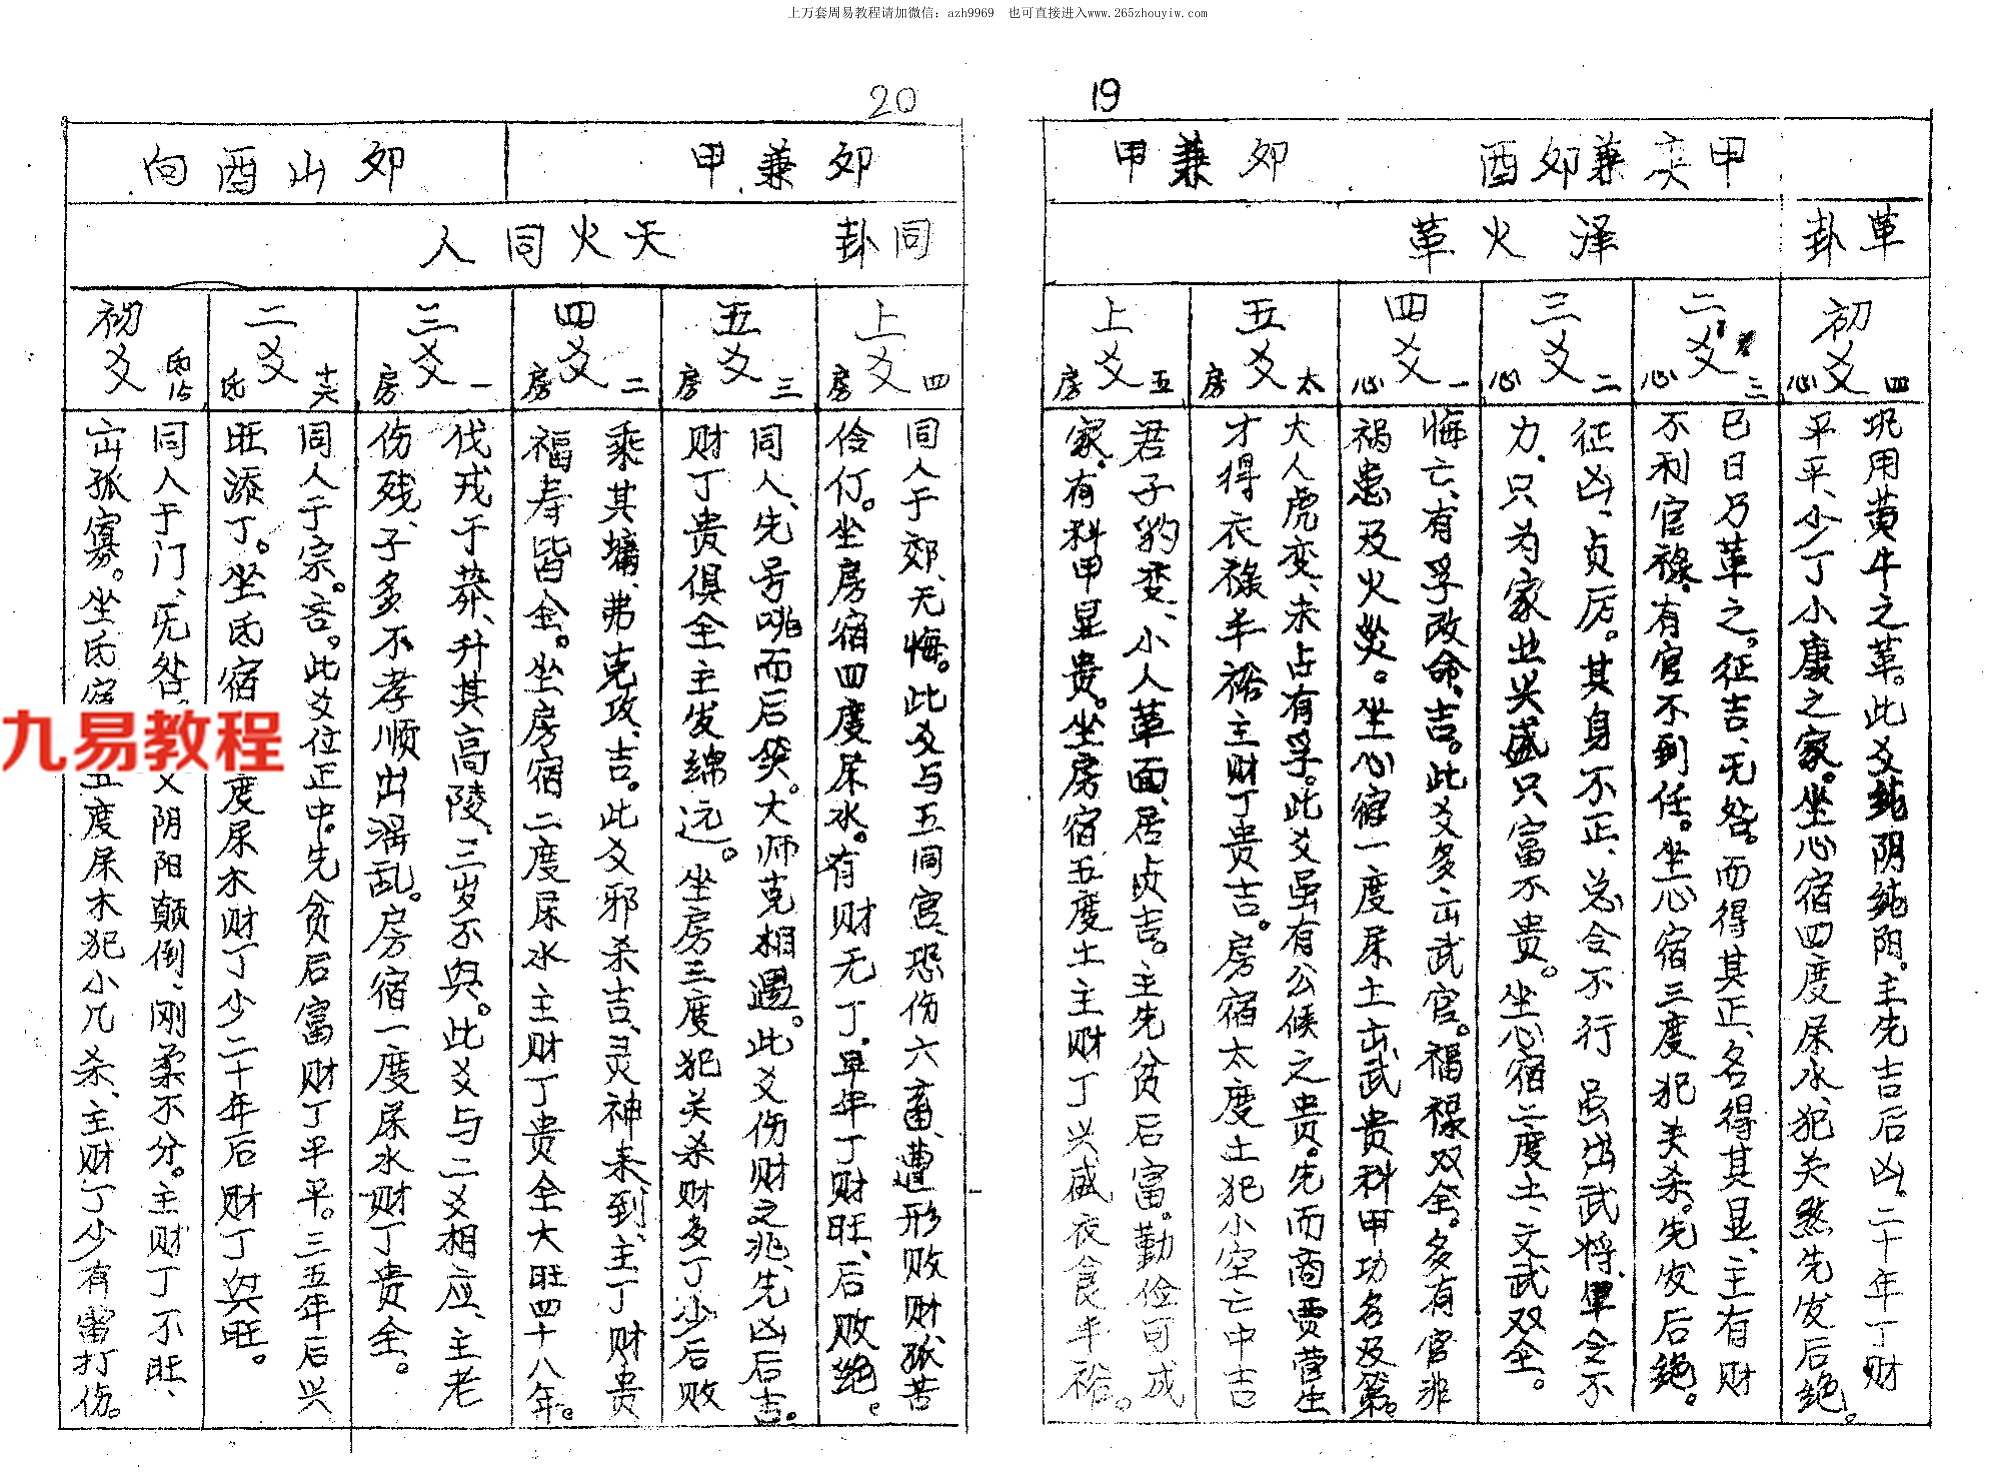 上万套周易教程请加微信：azh9969 也可直接进入www.265zhouyiw.com
19
甲 兼卯酉
卯兼甲
革卦
泽火革
初爻
心四
巩用黄牛之革。此爻纯阴纯阳。主先吉后凶。二十年丁财
平平、少丁小康之家。坐心宿四度屎水、犯关煞先发后绝。
二爻
心三
已日乃革之。征吉、无咎。而得其正、名得其显、主有财
不利官禄、有官不到任。坐心宿三度犯关杀。先发后绝。
三爻
心二
征凶、贞厉。其身不正、总令不行虽出武将、单令不
力、只为家业兴盛只富不贵。坐心宿二度土、文武双全。
四爻
心一
悔亡、有孚改命、吉。此爻多出武官。福禄双全。多有官非
祸患及火灾。坐心宿一度屎土出武贵科甲功名及第。
五爻
房太
大人虎变、未占有孚。此爻虽有公候之贵。先而商贾营生
才得衣禄丰裕主财丁贵吉。房宿太度土犯小空亡中吉
上爻
房五
君子豹变、小人革面、居贞吉。主先贫后富。勤俭可成
家、有科甲显贵。坐房宿五度土主财丁兴盛衣食丰裕。
20
卯兼甲
卯山酉向
同卦
天火同人
上爻
房四
同人于郊、无悔。此爻与五同宫、恐伤六畜、遭形败财孤苦
伶仃。坐房宿四度屎水。有财无丁、早年丁财旺、后败绝。
五爻
房三
同人、先号咷而后笑。大师克相遇。此爻伤财之兆、先凶后吉。
财丁贵俱全主发绵远。坐房三度犯关杀财多丁少后败
四爻
房二
乘其墉、弗克攻、吉。此爻邪杀吉、灵神来到、主丁财贵
福寿皆全。坐房宿二度屎水主财丁贵全大旺四十八年。
三爻
房一
伐戎于莽、升其高陵、三岁不兴。此爻与二爻相应、主老
伤残、子多不孝顺出淫乱。房宿一度屎水财丁贵全。
二爻
氐十六
同人于宗。吝。此爻位正中。先贫后富财丁平平。三五年后兴
旺添丁。坐氐宿度屎木财丁少二十年后财丁兴旺。
初爻
氐15
同人于门、无咎、爻阴阳颠倒、刚柔不分。主财丁不旺、
出孤寡。坐氐宿五度屎木犯小几杀、主财丁少有雷打伤。
九易教程